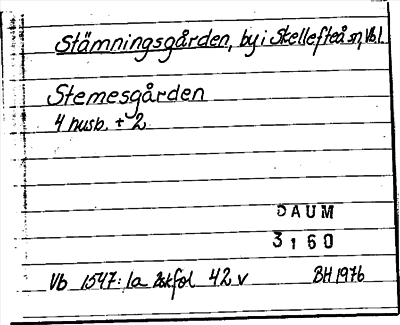 Stämningsgården, by i Skellefteå sn, Vbl.
Stemesgården
4 husb. + 2
DAUM
3160
Vb 1547: 1a 2skfol 42 v BH 1976